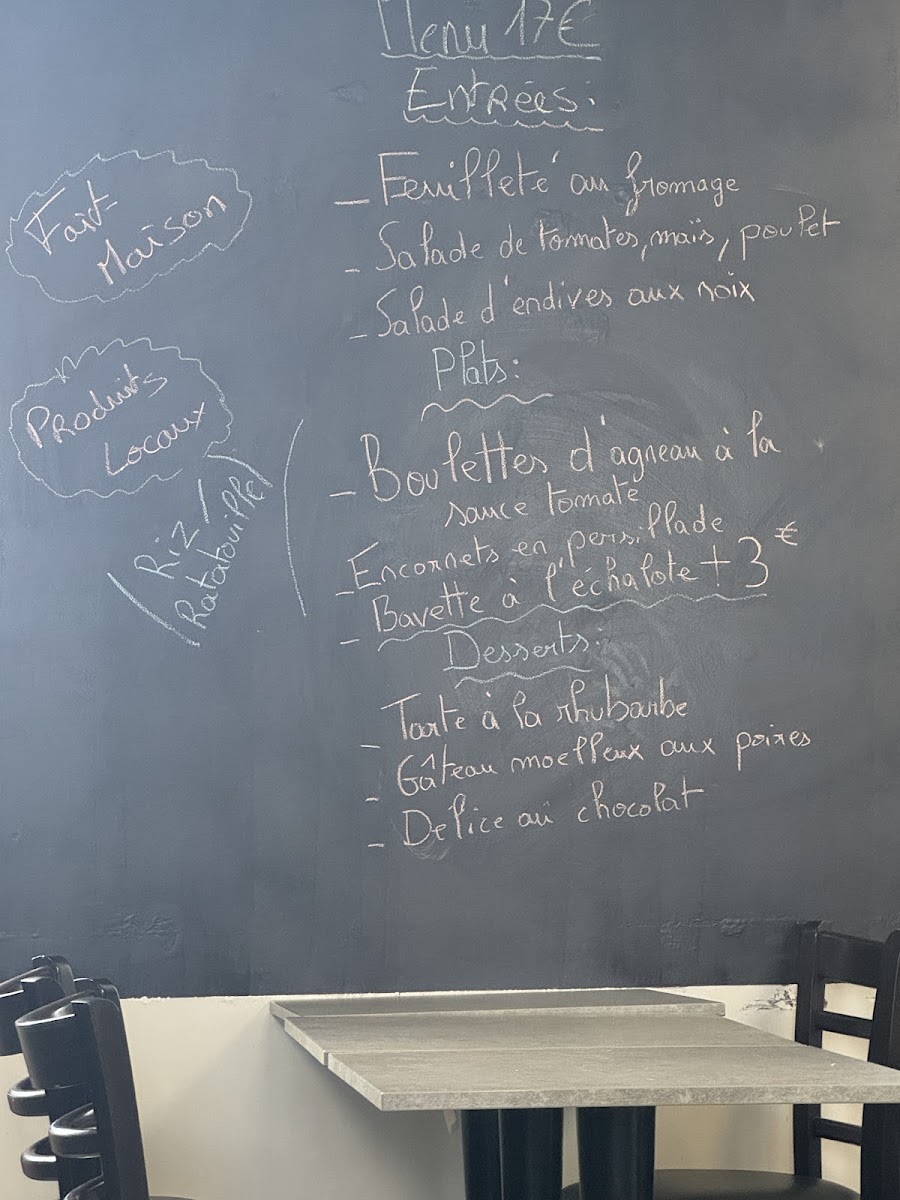 Menu 17€
Entrées:
- Feuilleté au fromage
- Salade de tomates, maïs, poulet
- Salade d'endives aux noix
Plats:
- Boulettes d'agneau à la
sauce tomate
- Encornets en persillade
- Bavette à l'échalote + 3€
Desserts:
- Tarte à la rhubarbe
- Gâteau moelleux aux poires
- Delice au chocolat
Fait
Maison
Produits
Locaux
Riz /
Ratatouille